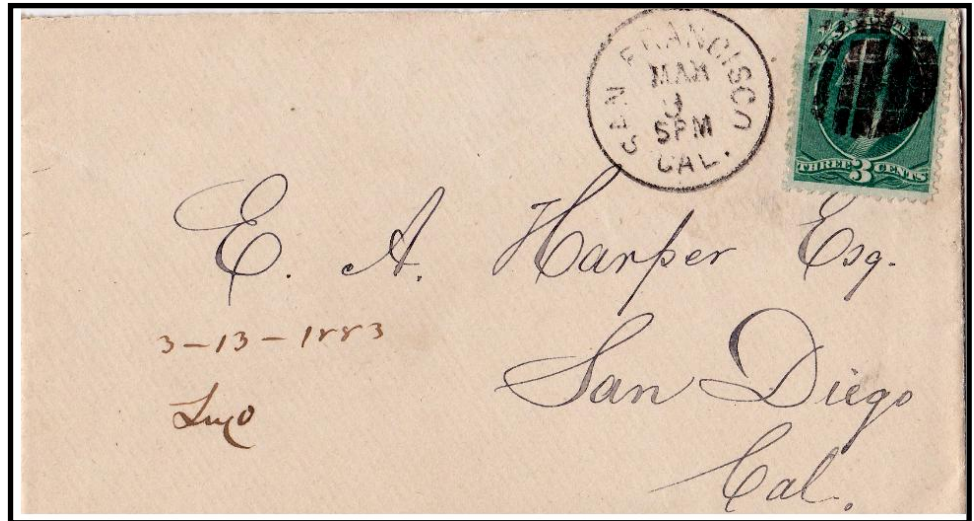 SAN FRANCISCO
MAR
5PM
CAL.
THREE 3 CENTS
E. A. Harper Esq.
3-13-1883
San Diego
Cal.